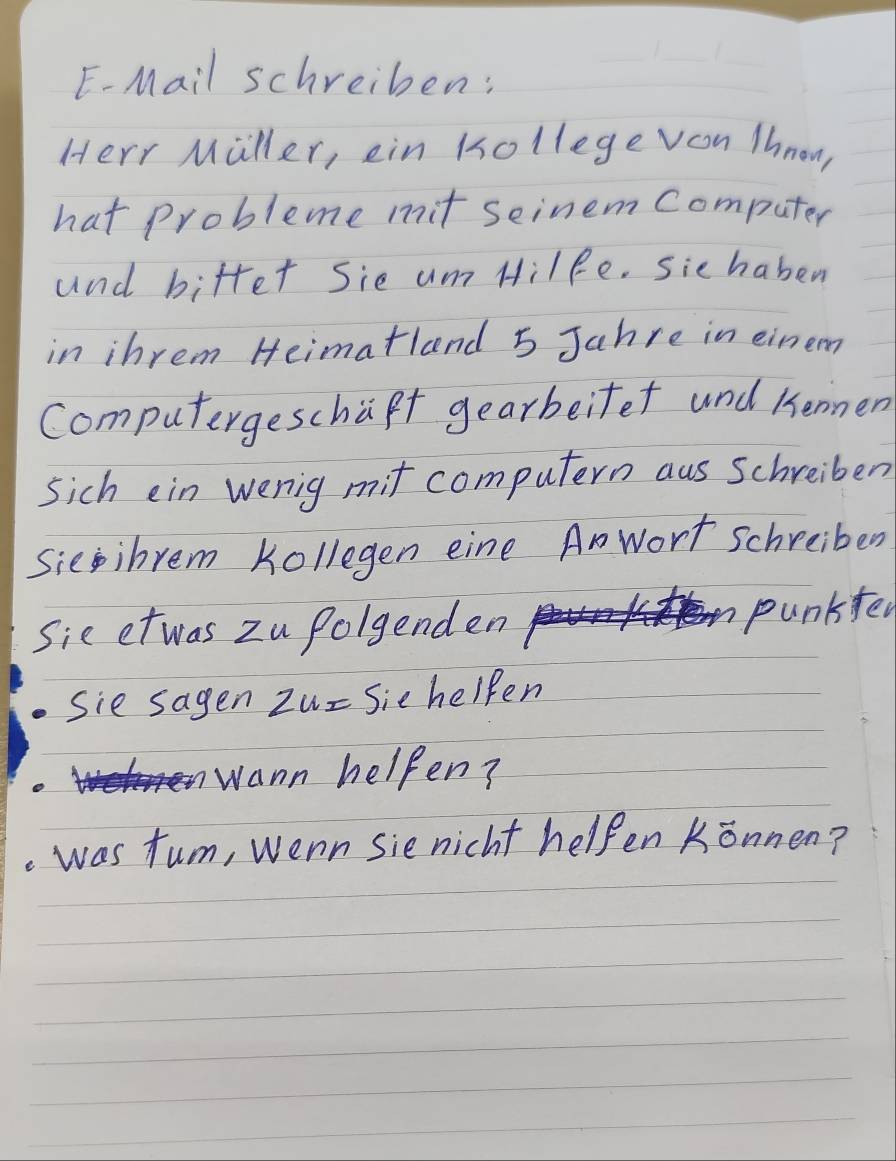 E-Mail schreiben:
Herr Müller, ein Kollege von Ihnen,
hat Probleme mit seinem Computer
und bittet Sie um Hilfe. Sie haben
in ihrem Heimatland 5 Jahre in einem
Computergeschäft gearbeitet und kennen
sich ein wenig mit computern aus schreiben
Sie ihrem Kollegen eine Anwort schreiben
Sie etwas zu folgenden punkten
• Sie sagen zu = Sie helfen
• wann helfen?
• was tum, wenn sie nicht helfen können?